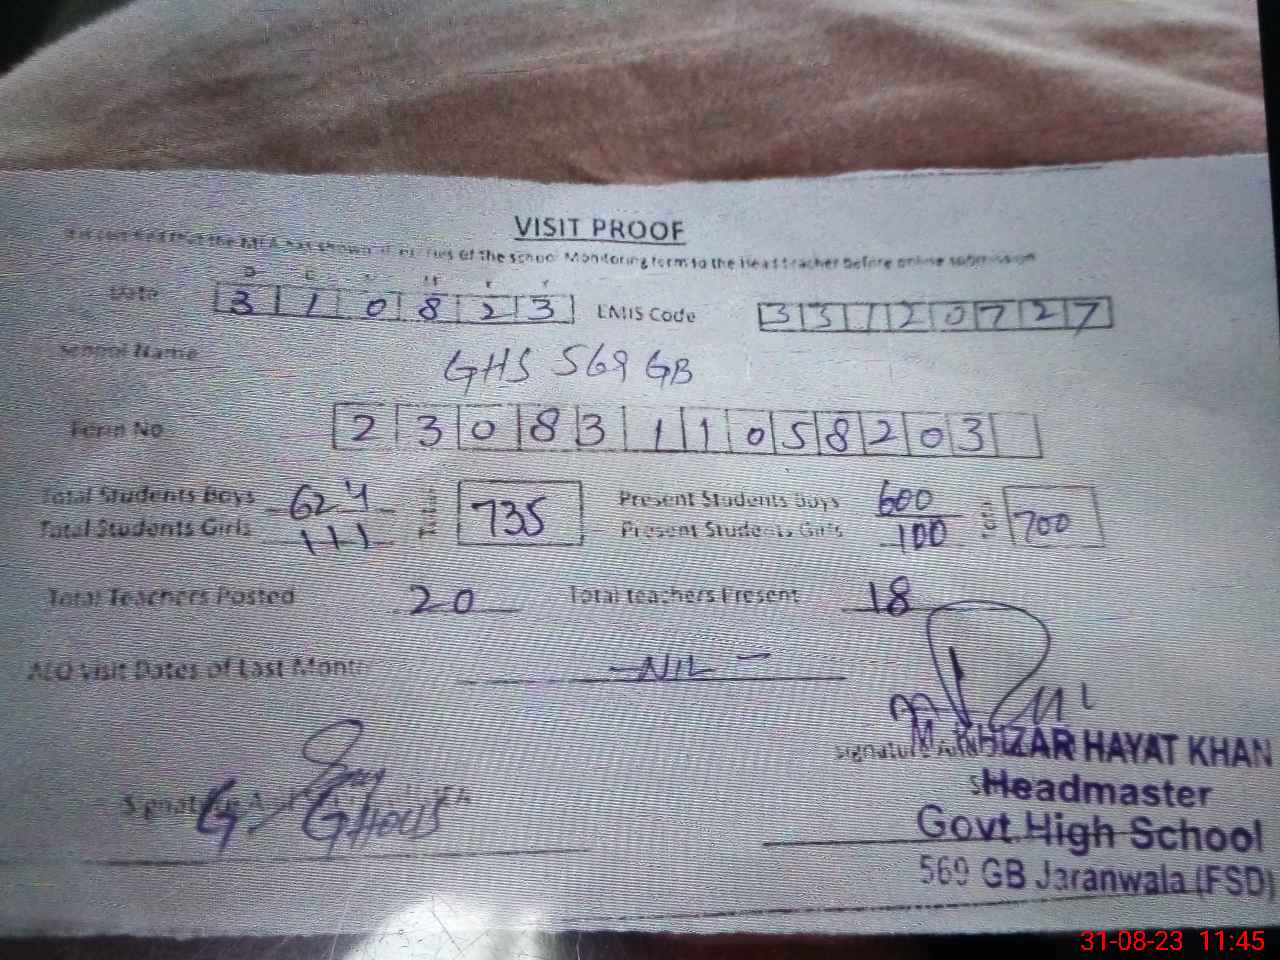 VISIT PROOF
that the MEA has shown all entries of the school Monitoring form to the Head teacher before online submission
Date 3 1 0 8 2 3 EMIS Code 3 3 1 2 0 7 2 7
School Name GHS 569 GB
Form No 2 3 0 8 3 1 1 0 5 8 2 0 3
Total Students Boys 624 Total 735 Present Students Boys 600 700
Total Students Girls 111 Present Students Girls 100
Total Teachers Posted 20 Total teachers Present 18
AEO Visit Dates of Last Month - NIL -
Signature M. KHIZAR HAYAT KHAN
Headmaster
G. GHOUS
Govt High School
569 GB Jaranwala (FSD)
31-08-23 11:45